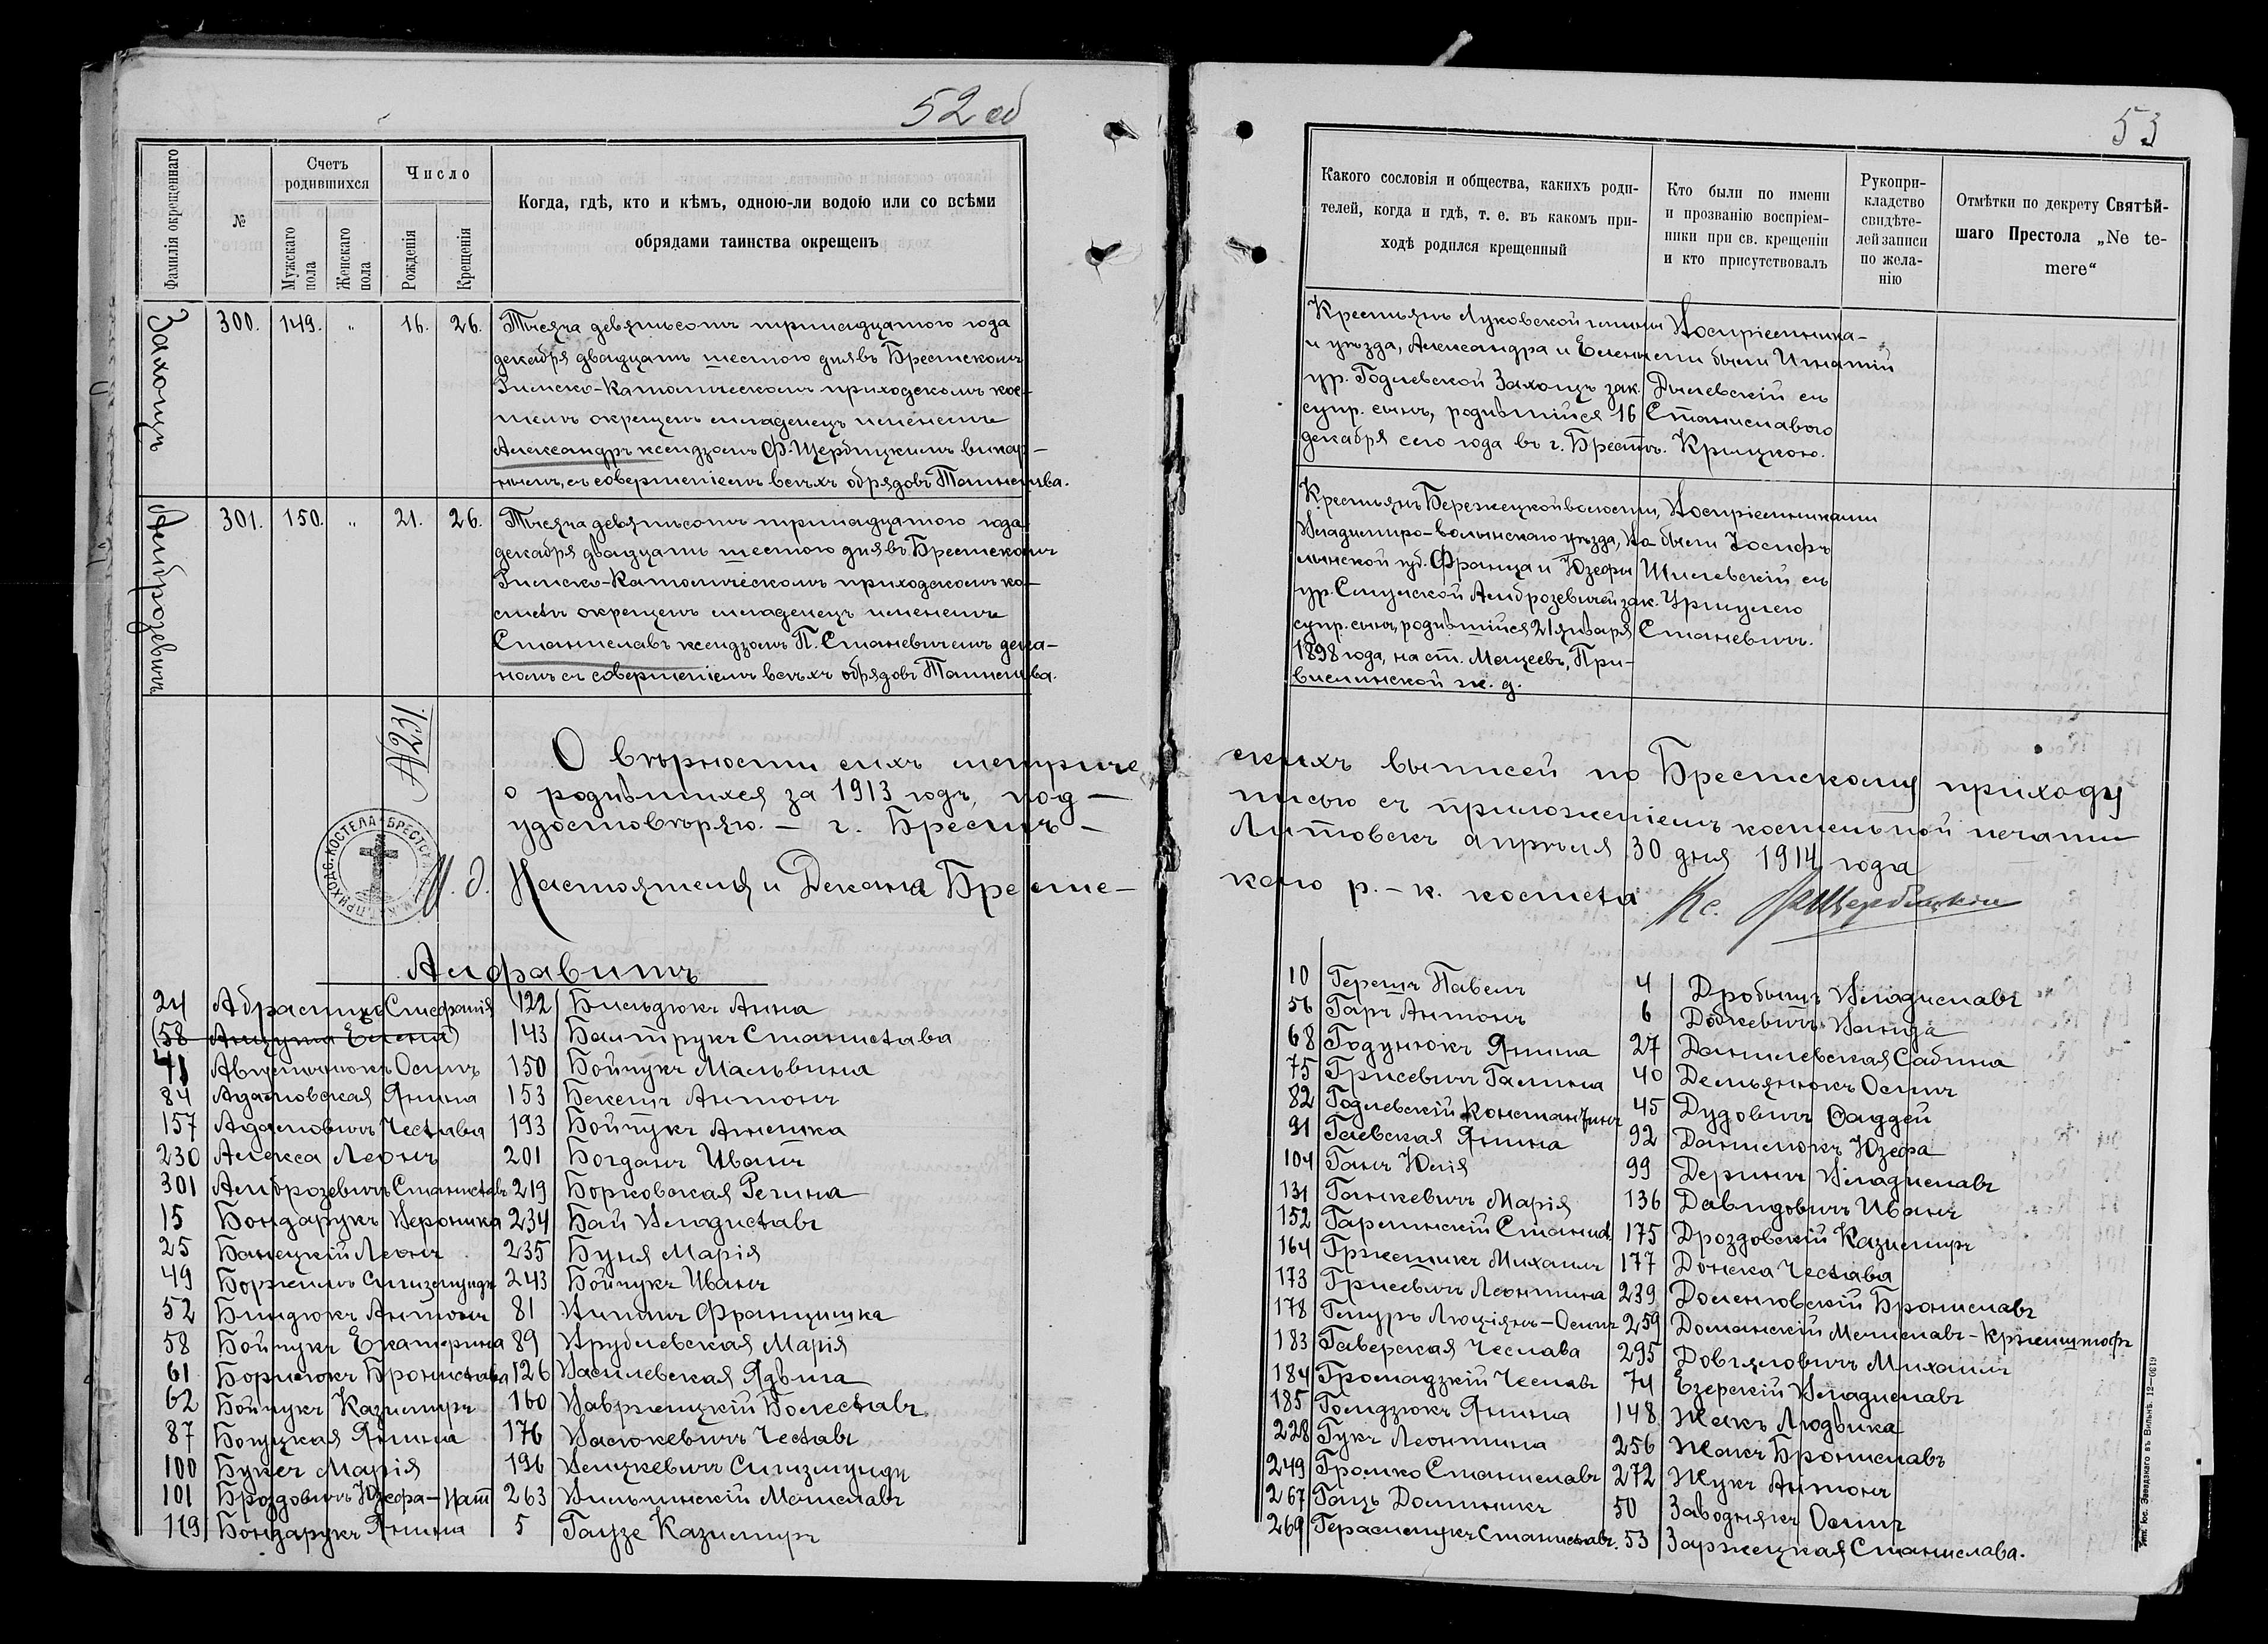 52 об
Фамилія окрещеннаго
№
Счетъ родившихся
Мужскаго пола
Женскаго пола
Число
Рожденія
Крещенія
Когда, гдѣ, кто и кѣмъ, одною-ли водою или со всѣми
обрядами таинства окрещенъ
Захоцъ
300. 149. " 16. 26.
Тысяча девятьсотъ тринадцатого года
декабря двадцать шестого дня въ Брестскомъ
Римско-Католическомъ приходскомъ кос-
телѣ окрещенъ младенецъ именемъ
Александръ ксендзомъ Ф. Щербицкимъ викар-
нымъ, съ совершеніемъ всѣхъ обрядовъ Таинства.
Амброзевичъ
301. 150. " 21. 26.
Тысяча девятьсотъ тринадцатого года
декабря двадцать шестого дня въ Брестскомъ
Римско-Католическомъ приходскомъ ко-
стелѣ окрещенъ младенецъ именемъ
Станиславъ ксендзомъ П. Станевичемъ дека-
номъ съ совершеніемъ всѣхъ обрядовъ Таинства.
№231.
О вѣрности сихъ метриче
о родившихся за 1913 годъ, под-
удостовѣряю. - г. Брестъ -
И. д. Настоятеля и Декана Брестс-
Алфавитъ
24 Абрамица Стефанія
(58 Анцута Елена)
41 Авдемонюкъ Осипъ
84 Адамовская Янина
157 Адамовичъ Чеслава
230 Алекса Леонъ
301 Амброзевичъ Станиславъ
15 Бондарукъ Вероника
25 Банецкій Леонъ
49 Боржимъ Сигизмундъ
52 Биндюкъ Антонъ
58 Бойчукъ Екатерина
61 Борисюкъ Бронислава
62 Бойчукъ Казимиръ
87 Богуцкая Янина
100 Букечъ Марія
101 Броздовичъ Юзефа-Нат
119 Бондарукъ Янина
122 Бильдюкъ Анна
143 Балтрукъ Станислава
150 Бойчукъ Мальвина
153 Бекешъ Антонъ
193 Бойчукъ Анелика
201 Богданъ Иванъ
219 Борковская Регина
234 Бай Владиславъ
235 Буня Марія
243 Бойчукъ Иванъ
81 Францишка
89 Врублевская Марія
126 Василевская Ядвига
160 Вавржецкій Болеславъ
176 Васюкевичъ Чеславъ
196 Велцкевичъ Сигизмундъ
263 Вильчинскій Мечиславъ
5 Гаузе Казимиръ
53
Какого сословія и общества, какихъ роди-
телей, когда и гдѣ, т. е. въ какомъ при-
ходѣ родился крещенный
Кто были по имени
и прозванію воспріем-
ники при св. крещеніи
и кто присутствовалъ
Рукопри-
кладство
свидѣте-
лей записи
по жела-
нію
Отмѣтки по декрету Святѣй-
шаго Престола „Ne te-
mere“
Крестьянъ Луковской гмины
и уѣзда, Александра и Елены
ур. Годлевской Захоцъ зак.
супр. сынъ, родившійся 16
декабря сего года въ г. Брестѣ.
Воспріемника-
ми были Игнатій
Дылевскій съ
Станиславою
Крицкою.
Крестьянъ Бережецкой волости,
Владиміро-волынскаго уѣзда, Во-
лынской губ. Франца и Юзефы
ур. Слумской Амброзевичей зак.
супр. сынъ, родившійся 21 января
1898 года, на ст. Мацеевъ, При-
вислинской ж. д.
Воспріемниками
были Іосифъ
Шилевскій съ
Уршулею
Станевичъ.
скихъ выписей по Брестскому приходу
писью съ приложеніемъ костельной печати
Литовскъ апрѣля 30 дня 1914 года
каго р.-к. костела Кс. Щербицкій
10 Герешъ Павелъ
56 Гаръ Антонъ
68 Годунюкъ Янина
75 Грисевичъ Галина
82 Годлевскій Константинъ
91 Гаевская Янина
104 Ганъ Юлія
131 Ганкевичъ Марія
152 Гарлинскій Станисл.
164 Гржешикъ Михаилъ
173 Грисевичъ Леонтина
178 Гецуръ Люціянъ-Осипъ
183 Гаверская Чеслава
184 Громадзкій Чеславъ
185 Гомидзюкъ Янина
228 Гукъ Леонтина
249 Громко Станиславъ
267 Гацъ Доминикъ
269 Герасимукъ Станиславъ.
4 Дробышъ Владиславъ
6 Добкевичъ Ванда
27 Данилевская Сабина
40 Демьянюкъ Осипъ
45 Дудовичъ Фаддей
92 Данилюкъ Юзефа
99 Деринъ Владиславъ
136 Давидовичъ Иванъ
175 Дроздовскій Казимиръ
177 Донска Чеслава
239 Доленговскій Брониславъ
259 Доманскій Мечиславъ-Кржиштофъ
295 Довгяловичъ Михаилъ
74 Езерскій Владиславъ
148 Жакъ Людвика
256 Жакъ Брониславъ
272 Жукъ Антонъ
50 Заводнякъ Осипъ
53 Заржецкая Станислава.
Тип. Іос. Завадзкаго въ Вильнѣ. 12-0619